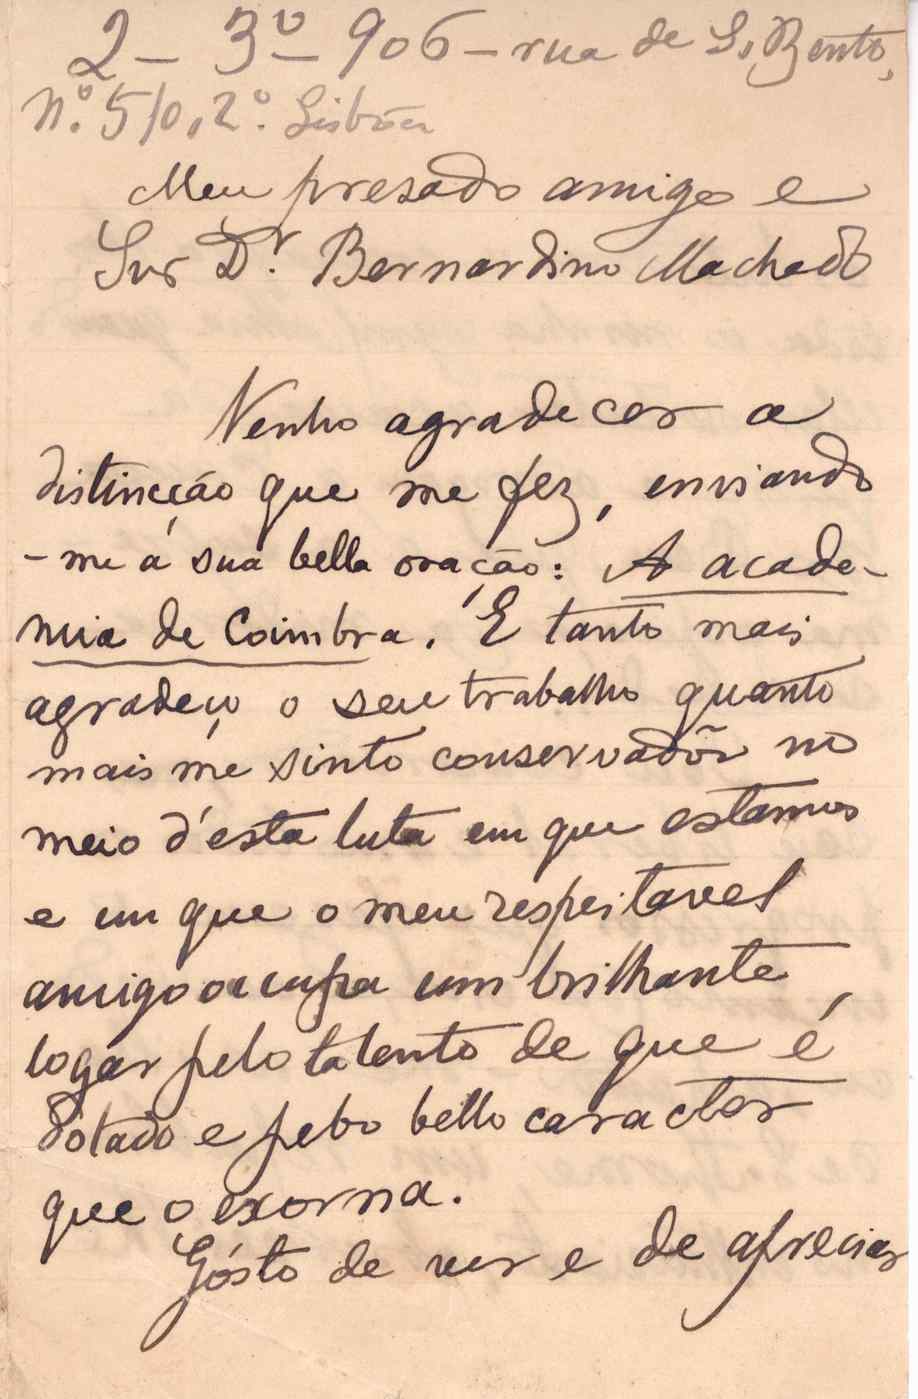 2 – 3º – 906 – rua de S. Bento,
nº. 510, 2º. Lisbôa
Meu presado amigo e
Snr Dr. Bernardino Machado
Venho agradecer a
distincção que me fez, enviando
-me a sua bella oração: A acade-
mia de Coimbra. E tanto mais
agradeço o seu trabalho quanto
mais me sinto conservadôr no
meio d'esta luta em que estamos
e em que o meu respeitavel
amigo occupa um brilhante
logar pelo talento de que é
dotado e pelo bello caracter
que o exorna.
Gósto de ver e de apreciar